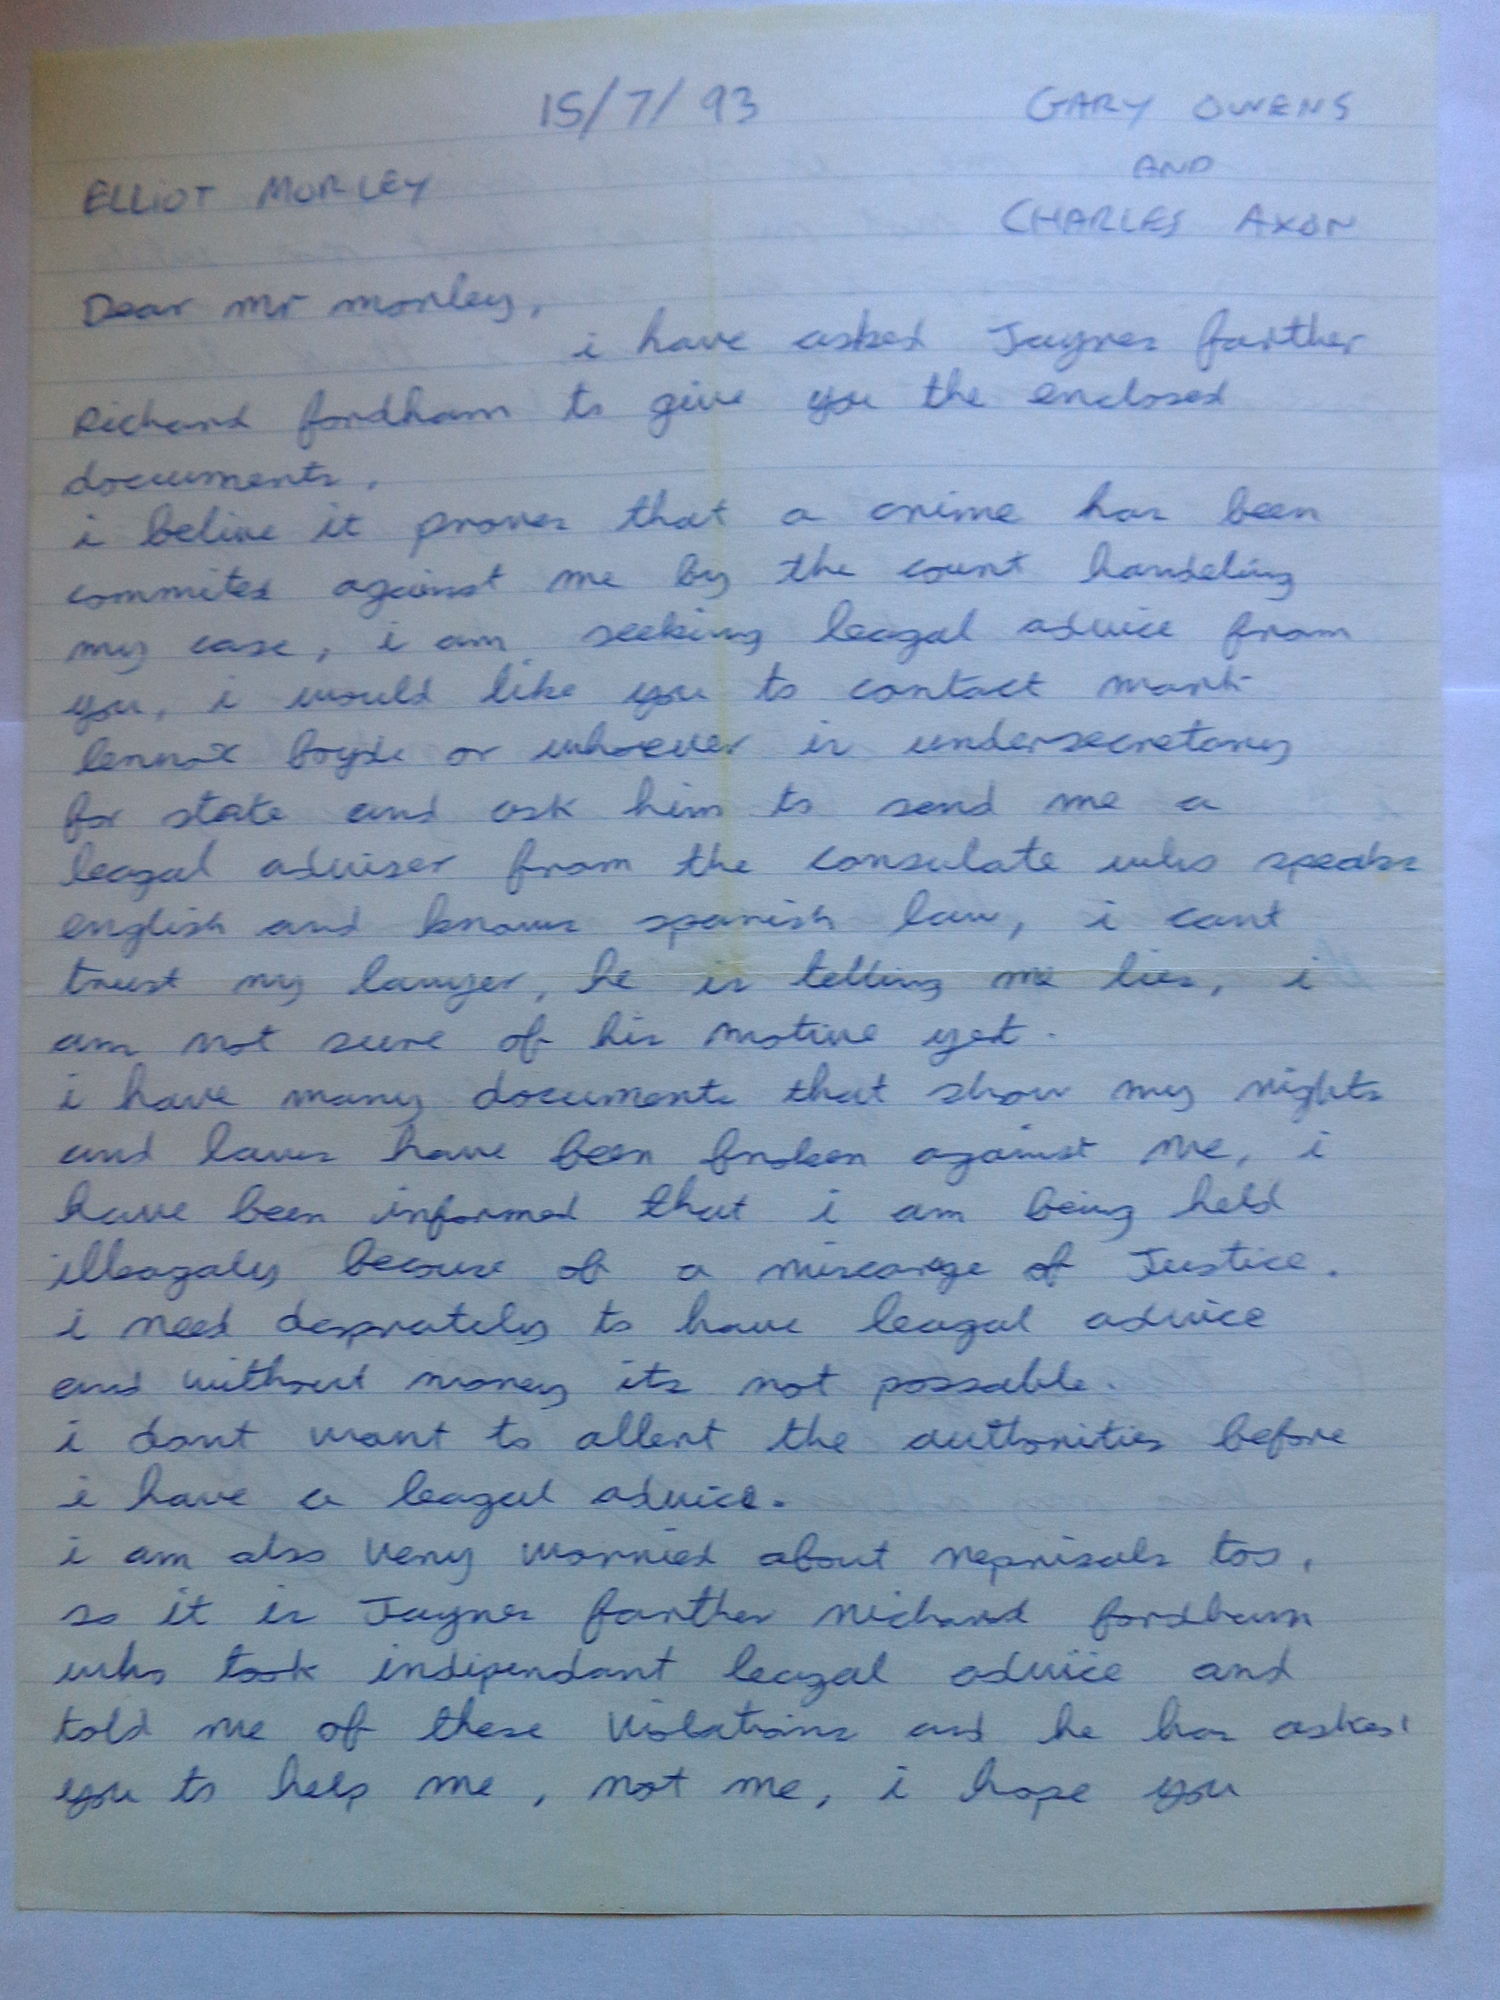 15/7/93
GARY OWENS
AND
CHARLES AXON
ELLIOT MORLEY
Dear Mr morley,
i have asked Jaynes farther
Richard fordham to give you the enclosed
documents.
i belive it proves that a crime has been
commited against me by the court handeling
my case, i am seeking leagal advice from
you, i would like you to contact mark
lennox boyde or whoever is undersecretary
for state and ask him to send me a
leagal adviser from the consulate who speaks
english and knows spanish law, i cant
trust my lawyer, he is telling me lies, i
am not sure of his motive yet.
i have many documents that show my rights
and laws have been broken against me, i
have been informed that i am being held
illeagaly becouse of a miscarige of Justice.
i need desprately to have leagal advice
and without money its not possable.
i dont want to allert the authorities before
i have a leagal advice.
i am also very worried about reprisals too,
so it is Jaynes farther richard fordham
who took indipendant leagal advice and
told me of these violations and he has asked
you to help me, not me, i hope you